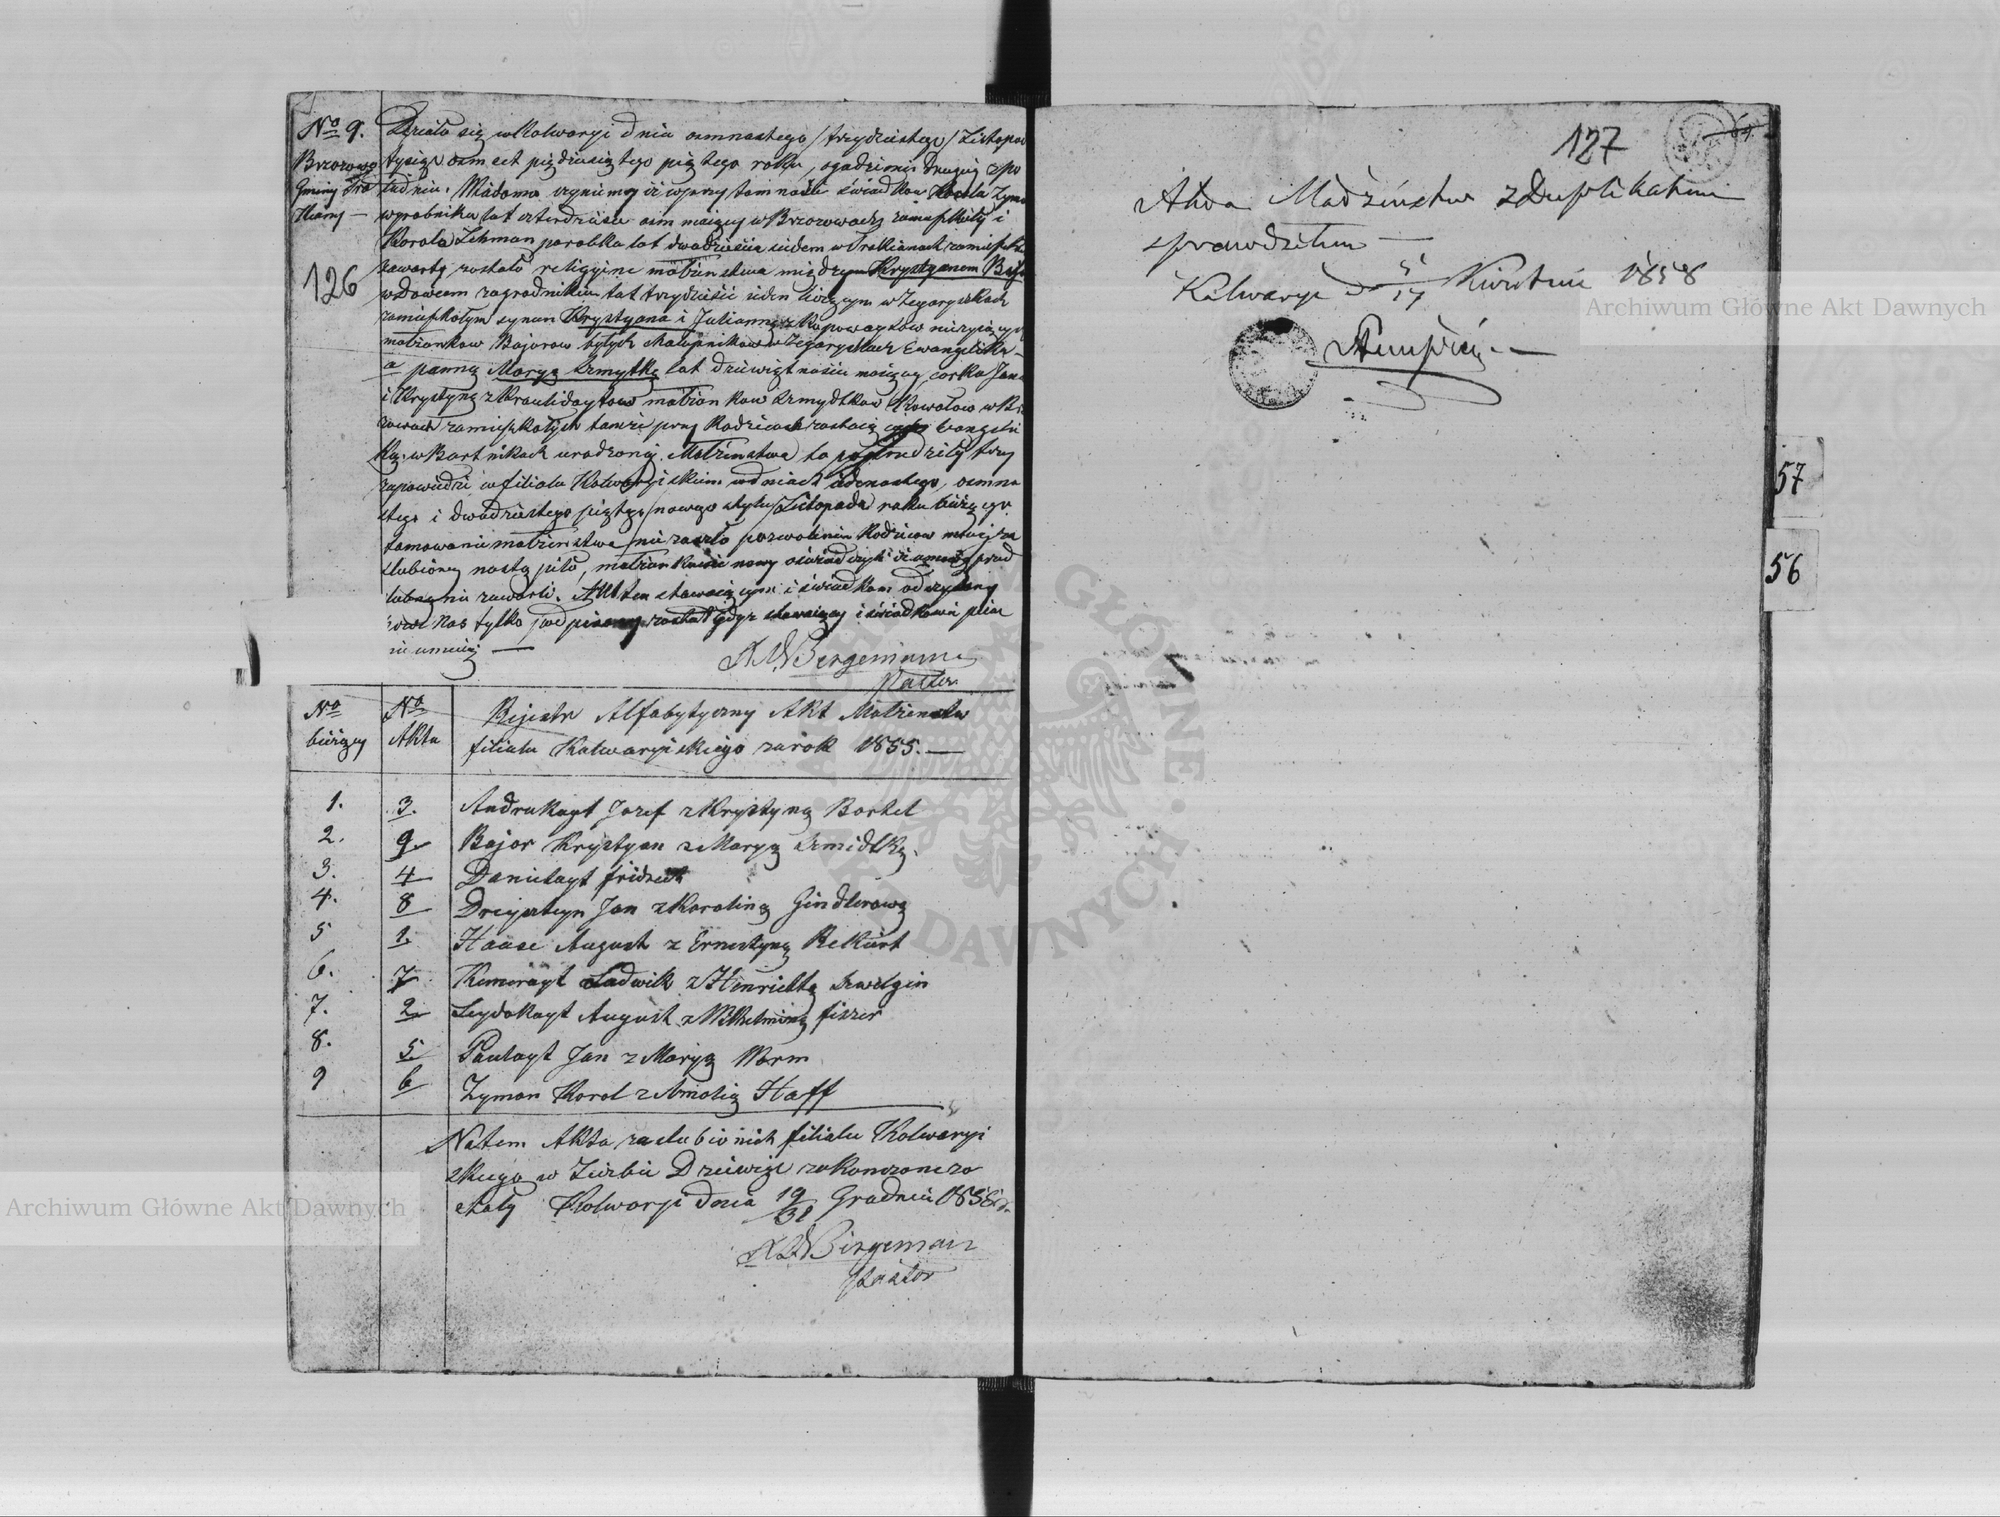 No 9.
Brzozowo
Gminy Tra
kiany —
126
Działo się w Kalwaryi dnia osmnastego / trzydziestego / Listopad
tysiąc osmset pięćdziesiątego piątego roku, o godzinie drugiej z po
łudniu. Wiadomo czynimy iż w przytomności świadków Karola Zyma
wyrobnika lat czterdzieści osim maiącego w Brzozowach zamieszkały i
Karola Lehman parobka lat dwadzieścia siedem w Trakianach zamieszk
zawarte zostało religijne małżeństwo między Krystyanem Baj
wdowcem zagrodnikiem lat trzydzieści siedem liczącym w Zegaryszkach
zamieszkałym synem Krystyana i Julianny z nieżyiących
małżonków Bajorow byłych w Zegaryszkach Ewangelik
a panną Maryą Szmytką lat dziewiętnaście maiącą corką Jana
i Krystyny z małżonków Szmydtkow w Brz
zowach zamieszkałych tamże przy Rodzicach zostaiącą Ewangeli
ką w Bartnikach urodzoną. Małżeństwo to poprzedziły trzy
zapowiedzi w filiale Kalwaryiskim w dniach iedenastego, osmna
stego i dwudziestego piątego / nowego stylu / Listopada roku bieżącego
tamowanie małżeństwa nie zaszło pozwolenie Rodziców za
ślubionej nastąpiło, małżonkowie nowi oświadczyli iż umowy przed
ślubnej nie zawarli. Akt ten stawaiącym i świadkom odczytany
przez nas tylko podpisany został gdyż stawaiący i świadkowie pisa
nie umieią —
Bergemann
Pastor
No
bieżący
No
Akta
Rejestr Alfabytyczny Akt Małżeństw
filialu Kalwaryiskiego za rok 1855. —
1. 3. Andrukayt Jozef z Krystyną Bartel
2. 9. Bajor Krystyan z Maryą Szmidtką.
3. 4 Danielayt fridrich
4. 8 Drejsztyn Jan z Karoliną Gindlerową
5 1. Haase August z Ernestyną Rekürt
6. 7 Kemerayt Ludwik z Henriettą Szwelgin
7. 2. Leydokayt August z Wilhelminą fiszer
8. 5 Paulayt Jan z Maryą Worm
9 6 Zyman Karol z Amalią Haff
Na tem Akta zaslubionich filialu Kalwaryi
skiego w Liczbie Dziewięc zakonczone zo
stały Kalwaryi dnia 19/31 Grudnia 1855
Bergemann
Pastor
127
Akta Małżeństw z Duplikatem
sprawdziłem —
Kalwarya d 5/17 Kwietnia 1858
57
56
Archiwum Główne Akt Dawnych
Archiwum Główne Akt Dawnych
GŁÓWNE · AKT DAWNYCH ·